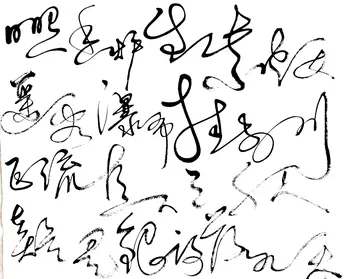 日照香炉生紫烟
遥看瀑布挂前川
飞流直下三千尺
疑是銀河落九天